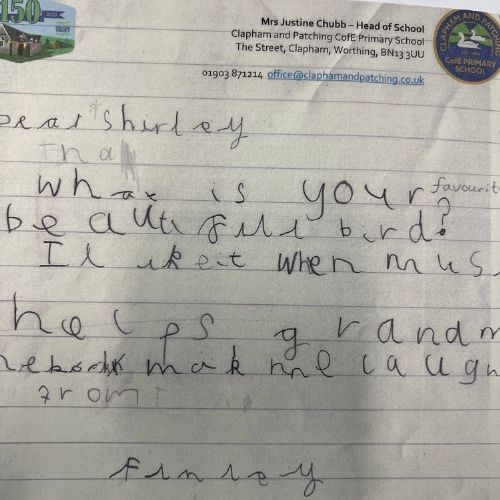 150
Mrs Justine Chubb – Head of School
Clapham and Patching CofE Primary School
The Street, Clapham, Worthing, BN13 3UU
01903 871214 office@claphamandpatching.co.uk
CLAPHAM AND PATCHING
CofE PRIMARY
SCHOOL
Dear Shirley
Tha
What is your favourit
beautifull bird?
I likeit when mus
helps grandm
make me laugh
From
Finley